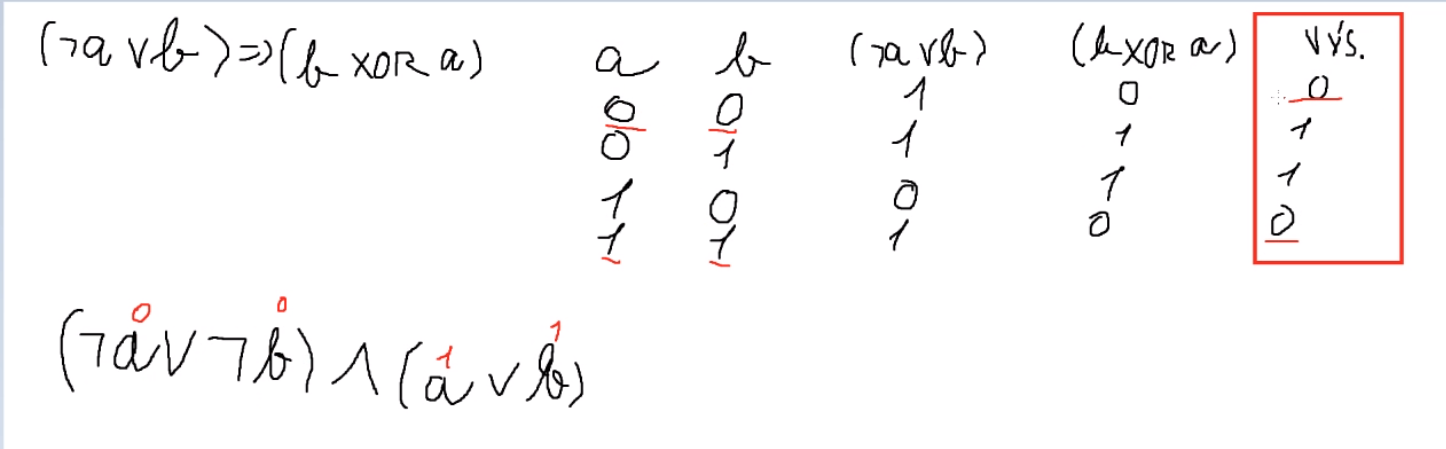 (¬a ∨ b) ⇒ (b XOR a) a b (¬a ∨ b) (b XOR a) VYS.
0 0 1 0 0
0 1 1 1 1
1 0 0 1 1
1 1 1 0 0
0 0 1 1
(¬a ∨ ¬b) ∧ (a ∨ b)